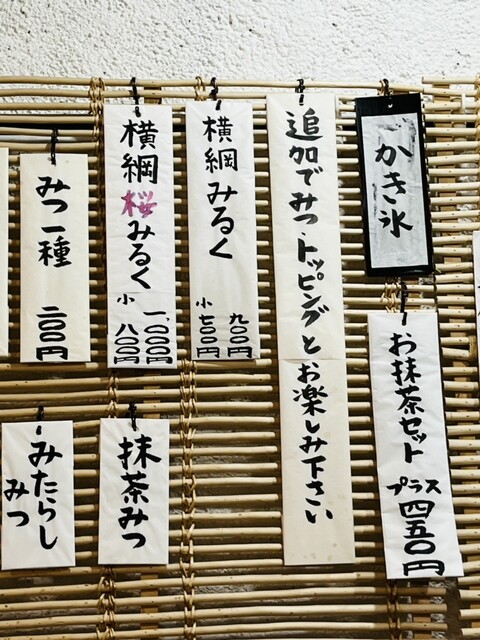 かき氷
お抹茶セット
プラス四五〇円
追加でみつ、トッピングと
お楽しみ下さい
横綱みるく
九〇〇円
小 七〇〇円
横綱桜みるく
一、〇〇〇円
小 八〇〇円
みつ一種
二〇〇円
抹茶みつ
みたらし
みつ